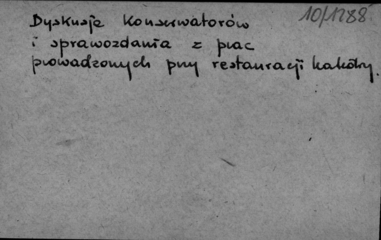 10/1288
Dyskusje Konserwatorów
i sprawozdania z prac
prowadzonych przy restauracji katedry.